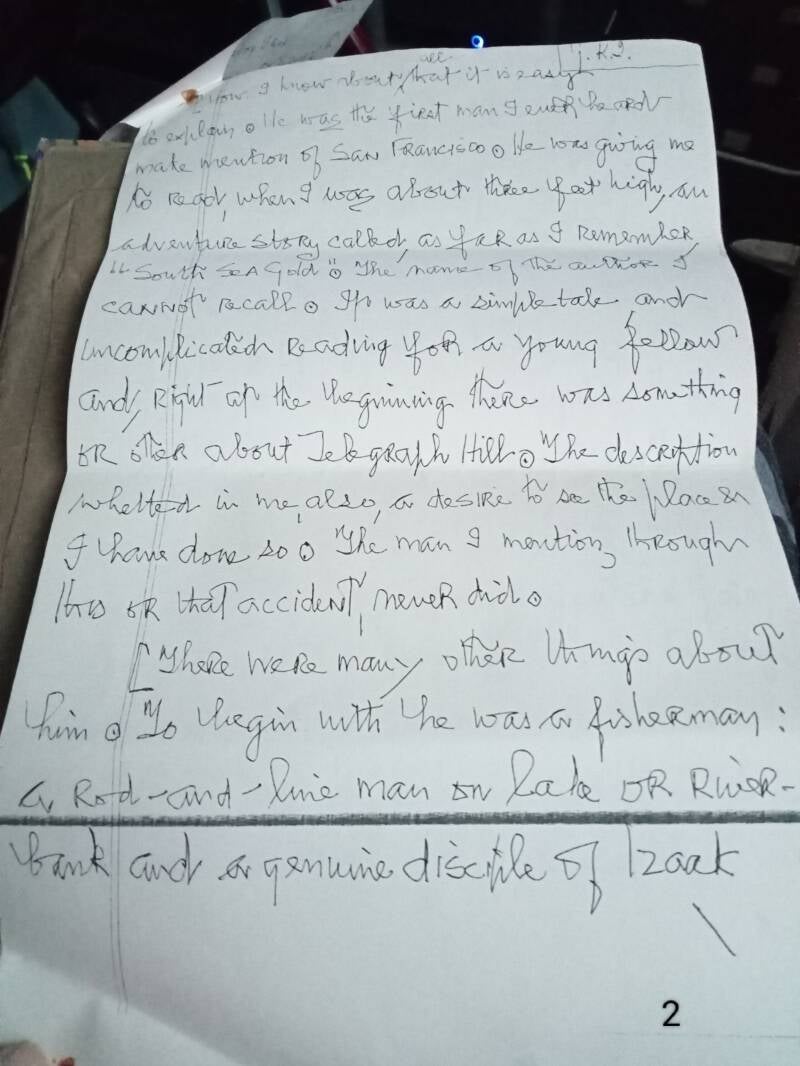 J.K.I.
all
How I know about that it is easy
to explain. He was the first man I ever heard
make mention of San Francisco. He was giving me
to read, when I was about three feet high, an
adventure story called, as far as I remember,
"South Sea Gold". The name of the author I
cannot recall. It was a simple tale and
uncomplicated reading for a young fellow
and, right at the beginning there was something
or other about Telegraph Hill. The description
whetted in me, also, a desire to see the place &
I have done so. The man I mention, through
this or that accident, never did.
[There were many other things about
him. To begin with he was a fisherman:
a rod-and-line man on lake or river-
bank and a genuine disciple of Izaak
\
2